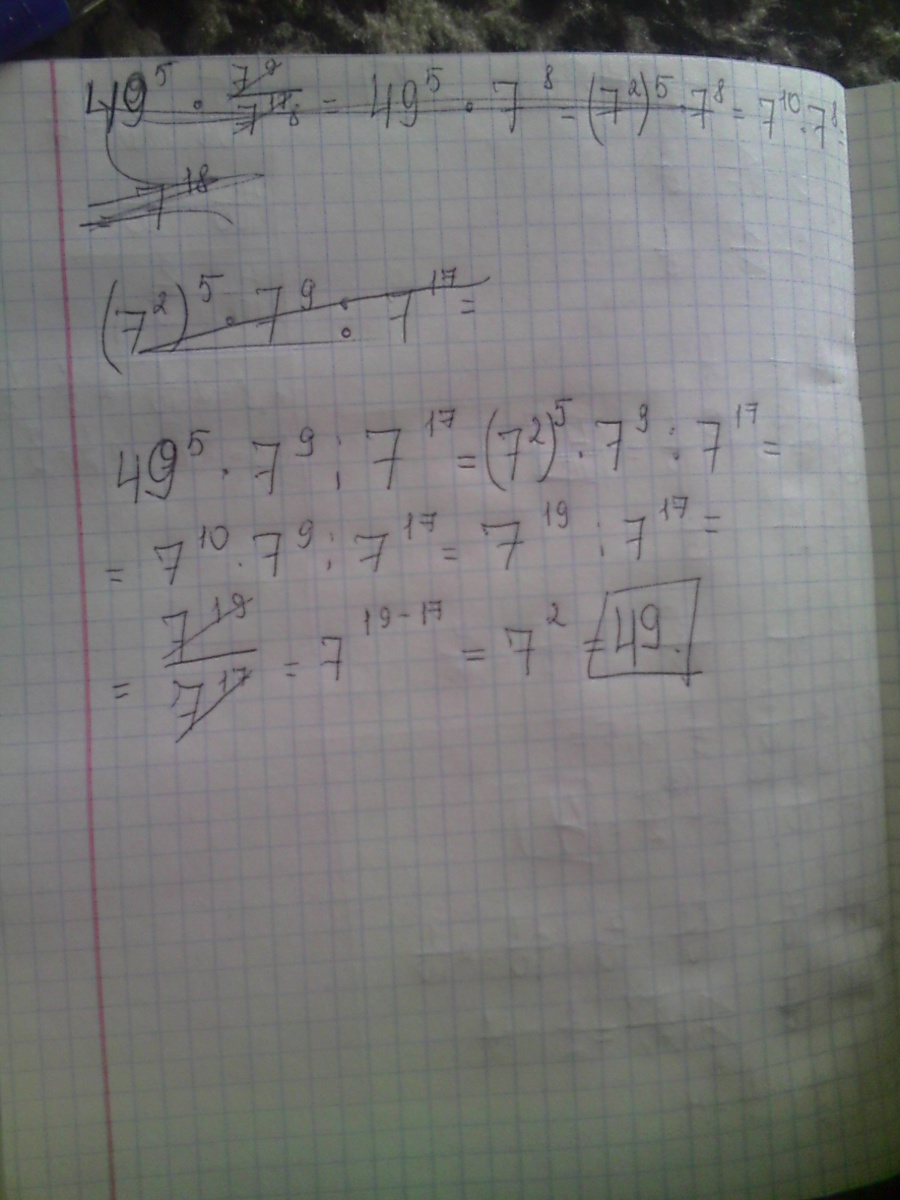 49⁵ · 7⁹/7¹⁷₈ = 49⁵ · 7⁸ = (7²)⁵ · 7⁸ = 7¹⁰ · 7⁸ =
7¹⁸
(7²)⁵ · 7⁹ : 7¹⁷ =
49⁵ · 7⁹ : 7¹⁷ = (7²)⁵ · 7⁹ : 7¹⁷ =
= 7¹⁰ · 7⁹ : 7¹⁷ = 7¹⁹ : 7¹⁷ =
= 7¹⁹/7¹⁷ = 7¹⁹⁻¹⁷ = 7² = 49.